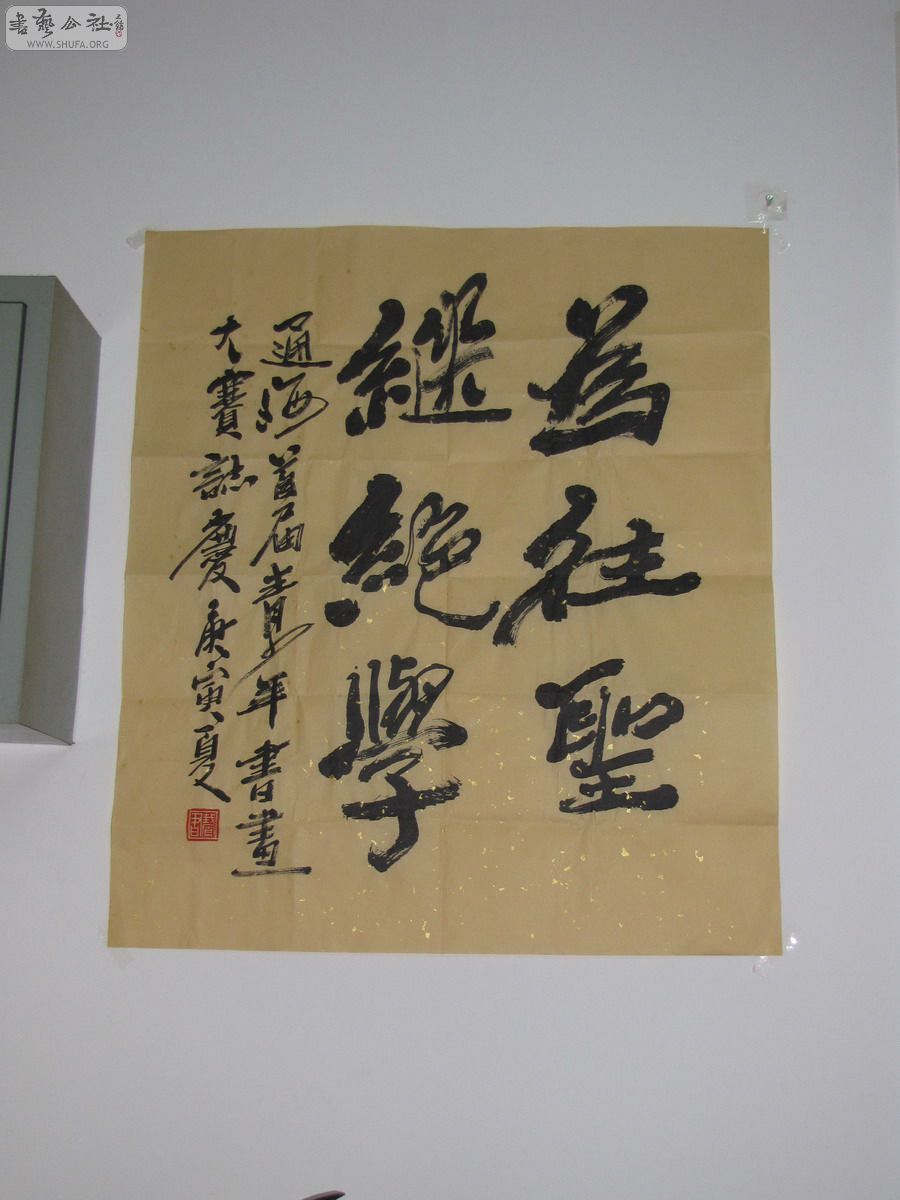 書藝公社
WWW.SHUFA.ORG
為往聖
继絕學
通海首届青少年書畫
大賽誌慶庚寅夏